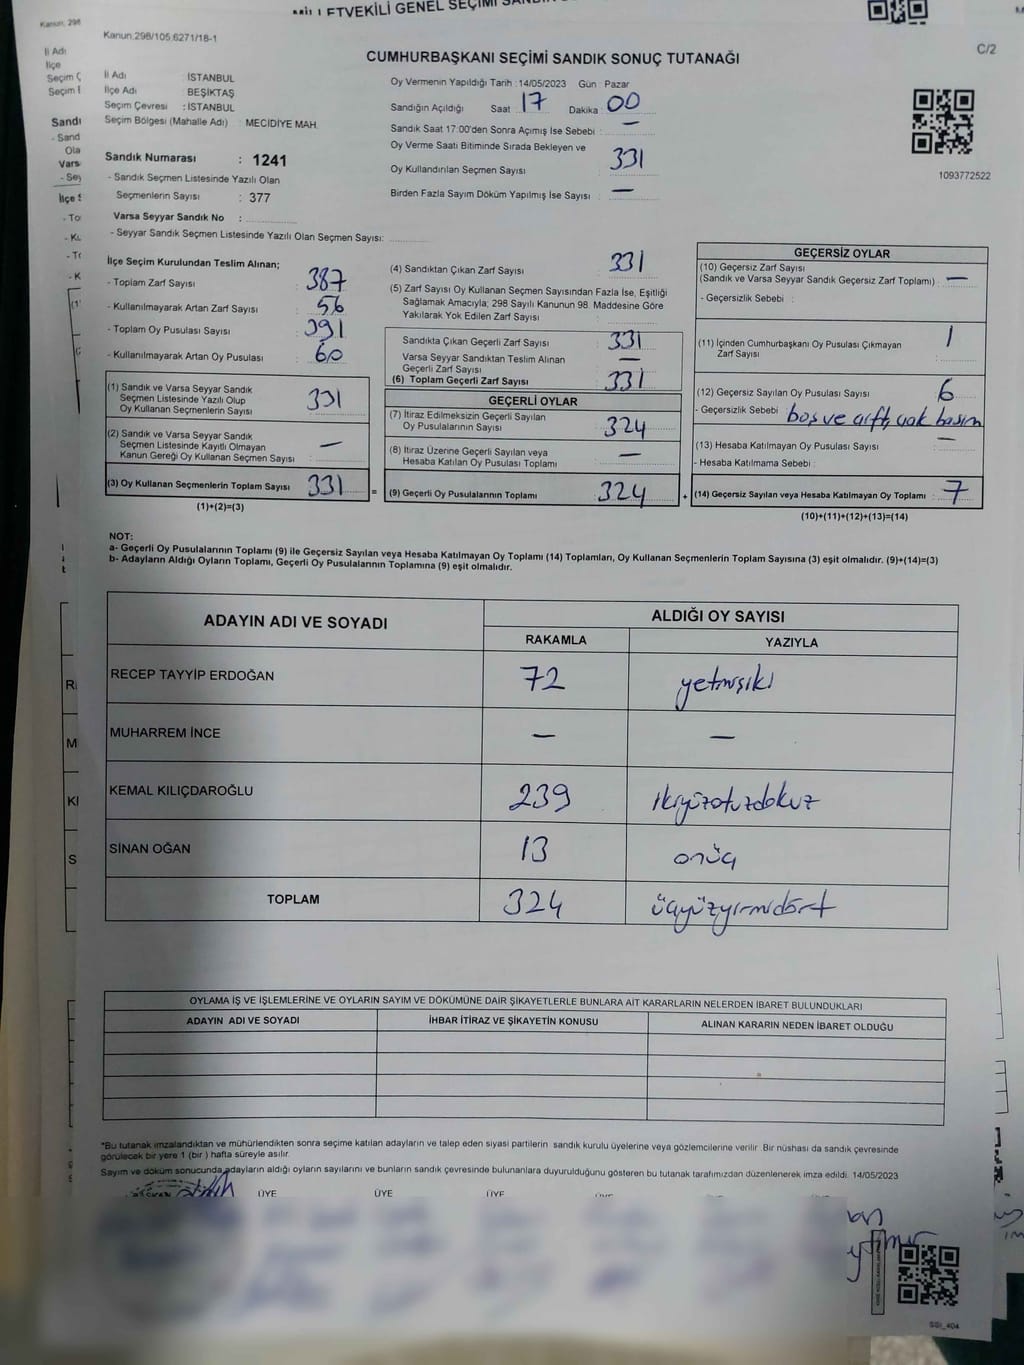 MİLLETVEKİLİ GENEL SEÇİMİ SANDIK
Kanun 298
Kanun.298/105;6271/18-1
C/2
CUMHURBAŞKANI SEÇİMİ SANDIK SONUÇ TUTANAĞI
İl Adı : İSTANBUL
İlçe Adı : BEŞİKTAŞ
Seçim Çevresi : İSTANBUL
Seçim Bölgesi (Mahalle Adı) : MECİDİYE MAH.
Sandık Numarası : 1241
- Sandık Seçmen Listesinde Yazılı Olan
Seçmenlerin Sayısı : 377
Varsa Seyyar Sandık No :
- Seyyar Sandık Seçmen Listesinde Yazılı Olan Seçmen Sayısı:
Oy Vermenin Yapıldığı Tarih : 14/05/2023 Gün : Pazar
Sandığın Açıldığı Saat 17 Dakika 00
Sandık Saat 17:00'den Sonra Açımış İse Sebebi : —
Oy Verme Saati Bitiminde Sırada Bekleyen ve
Oy Kullandırılan Seçmen Sayısı : 331
Birden Fazla Sayım Döküm Yapılmış İse Sayısı : —
1093772522
İlçe Seçim Kurulundan Teslim Alınan;
- Toplam Zarf Sayısı : 387
- Kullanılmayarak Artan Zarf Sayısı : 56
- Toplam Oy Pusulası Sayısı : 391
- Kullanılmayarak Artan Oy Pusulası : 60
(1) Sandık ve Varsa Seyyar Sandık
Seçmen Listesinde Yazılı Olup
Oy Kullanan Seçmenlerin Sayısı : 331
(2) Sandık ve Varsa Seyyar Sandık
Seçmen Listesinde Kayıtlı Olmayan
Kanun Gereği Oy Kullanan Seçmen Sayısı : —
(3) Oy Kullanan Seçmenlerin Toplam Sayısı : 331 =
(1)+(2)=(3)
(4) Sandıktan Çıkan Zarf Sayısı : 331
(5) Zarf Sayısı Oy Kullanan Seçmen Sayısından Fazla İse, Eşitliği
Sağlamak Amacıyla; 298 Sayılı Kanunun 98. Maddesine Göre
Yakılarak Yok Edilen Zarf Sayısı :
Sandıkta Çıkan Geçerli Zarf Sayısı : 331
Varsa Seyyar Sandıktan Teslim Alınan
Geçerli Zarf Sayısı : —
(6) Toplam Geçerli Zarf Sayısı : 331
GEÇERLİ OYLAR
(7) İtiraz Edilmeksizin Geçerli Sayılan
Oy Pusulalarının Sayısı : 324
(8) İtiraz Üzerine Geçerli Sayılan veya
Hesaba Katılan Oy Pusulası Toplamı : —
(9) Geçerli Oy Pusulalarının Toplamı : 324 +
GEÇERSİZ OYLAR
(10) Geçersiz Zarf Sayısı
(Sandık ve Varsa Seyyar Sandık Geçersiz Zarf Toplamı) : —
- Geçersizlik Sebebi :
(11) İçinden Cumhurbaşkanı Oy Pusulası Çıkmayan
Zarf Sayısı : 1
(12) Geçersiz Sayılan Oy Pusulası Sayısı : 6
- Geçersizlik Sebebi : boş ve çift, çok basım
(13) Hesaba Katılmayan Oy Pusulası Sayısı : —
- Hesaba Katılmama Sebebi :
(14) Geçersiz Sayılan veya Hesaba Katılmayan Oy Toplamı : 7
(10)+(11)+(12)+(13)=(14)
NOT:
a- Geçerli Oy Pusulalarının Toplamı (9) ile Geçersiz Sayılan veya Hesaba Katılmayan Oy Toplamı (14) Toplamları, Oy Kullanan Seçmenlerin Toplam Sayısına (3) eşit olmalıdır. (9)+(14)=(3)
b- Adayların Aldığı Oyların Toplamı, Geçerli Oy Pusulalarının Toplamına (9) eşit olmalıdır.
ADAYIN ADI VE SOYADI ALDIĞI OY SAYISI
RAKAMLA YAZIYLA
RECEP TAYYİP ERDOĞAN 72 yetmişiki
MUHARREM İNCE — —
KEMAL KILIÇDAROĞLU 239 ikiyüzotuzdokuz
SİNAN OĞAN 13 onüç
TOPLAM 324 üçyüzyirmidört
OYLAMA İŞ VE İŞLEMLERİNE VE OYLARIN SAYIM VE DÖKÜMÜNE DAİR ŞİKAYETLERLE BUNLARA AİT KARARLARIN NELERDEN İBARET BULUNDUKLARI
ADAYIN ADI VE SOYADI İHBAR İTİRAZ VE ŞİKAYETİN KONUSU ALINAN KARARIN NEDEN İBARET OLDUĞU
*Bu tutanak imzalandıktan ve mühürlendikten sonra seçime katılan adayların ve talep eden siyasi partilerin sandık kurulu üyelerine veya gözlemcilerine verilir. Bir nüshası da sandık çevresinde
görülecek bir yere 1 (bir ) hafta süreyle asılır.
Sayım ve döküm sonucunda adayların aldığı oyların sayılarını ve bunların sandık çevresinde bulunanlara duyurulduğunu gösteren bu tutanak tarafımızdan düzenlenerek imza edildi. 14/05/2023
BAŞKAN ÜYE ÜYE ÜYE
SSİ_404